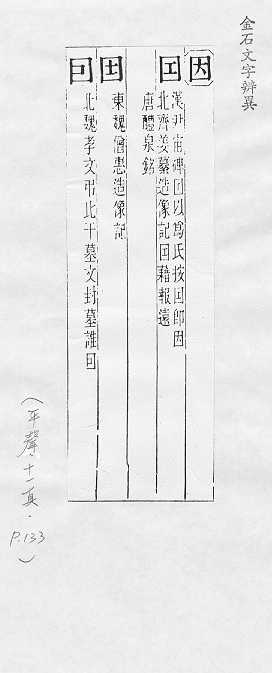 金石文字辨異
因
漢尹宙碑囙以爲氏按囙即因
北齊姜纂造像記囙藉報遠
唐醴泉銘
東魏僧惠造像記
囙
北魏孝文弔比干墓文封墓誰囙
（平聲．十一真．P.133）